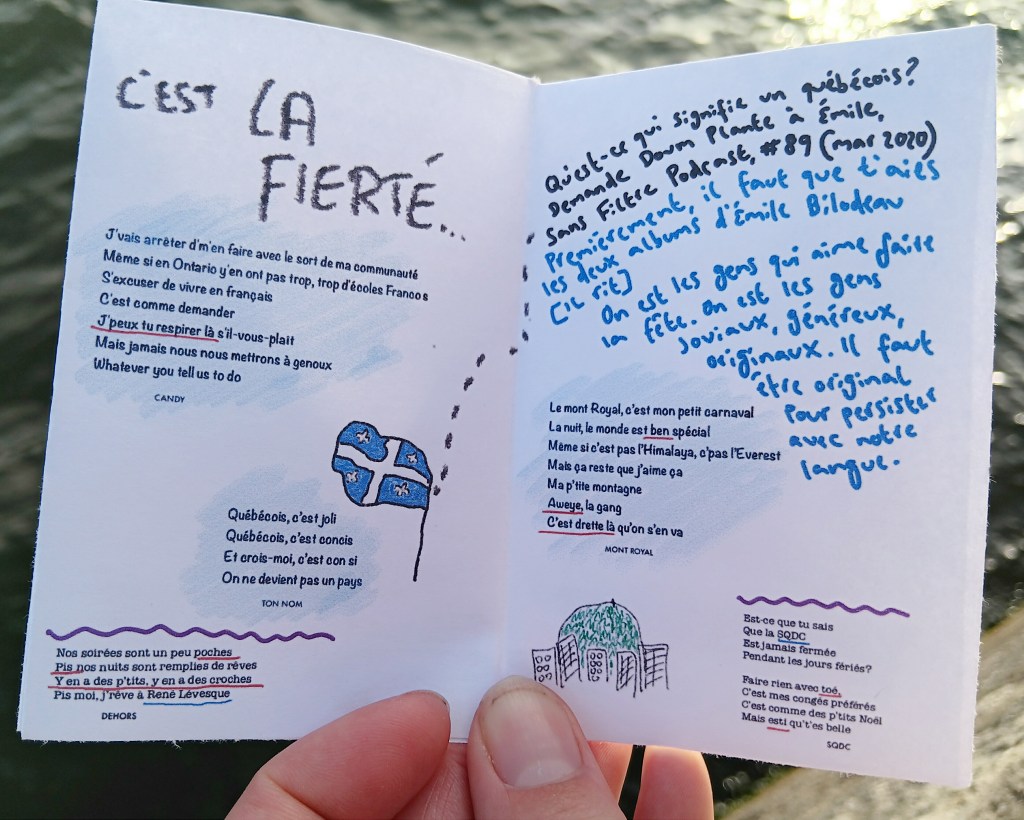 C'EST LA
FIERTÉ...
J'vais arrêter d'm'en faire avec le sort de ma communauté
Même si en Ontario y'en ont pas trop, trop d'écoles Francos
S'excuser de vivre en français
C'est comme demander
J'peux tu respirer là s'il-vous-plait
Mais jamais nous nous mettrons à genoux
Whatever you tell us to do
CANDY
Québécois, c'est joli
Québécois, c'est concis
Et crois-moi, c'est con si
On ne devient pas un pays
TON NOM
Nos soirées sont un peu poches
Pis nos nuits sont remplies de rêves
Y en a des p'tits, y en a des croches
Pis moi, j'rêve à René Lévesque
DEHORS
Qu'est-ce qui signifie un québécois?
Demande Doum Plante à Émile,
Sans Filtre Podcast, #89 (mar 2020)
Premièrement, il faut que t'aies
les deux albums d'Émile Bilodeau
[il rit]
On est les gens qui aime faire
la fête. On est les gens
joviaux, généreux,
originaux. Il faut
être original
pour persister
avec notre
langue.
Le mont Royal, c'est mon petit carnaval
La nuit, le monde est ben spécial
Même si c'est pas l'Himalaya, c'pas l'Everest
Mais ça reste que j'aime ça
Ma p'tite montagne
Aweye, la gang
C'est drette là qu'on s'en va
MONT ROYAL
Est-ce que tu sais
Que la SQDC
Est jamais fermée
Pendant les jours fériés?
Faire rien avec toé,
C'est mes congés préférés
C'est comme des p'tits Noël
Mais esti qu't'es belle
SQDC